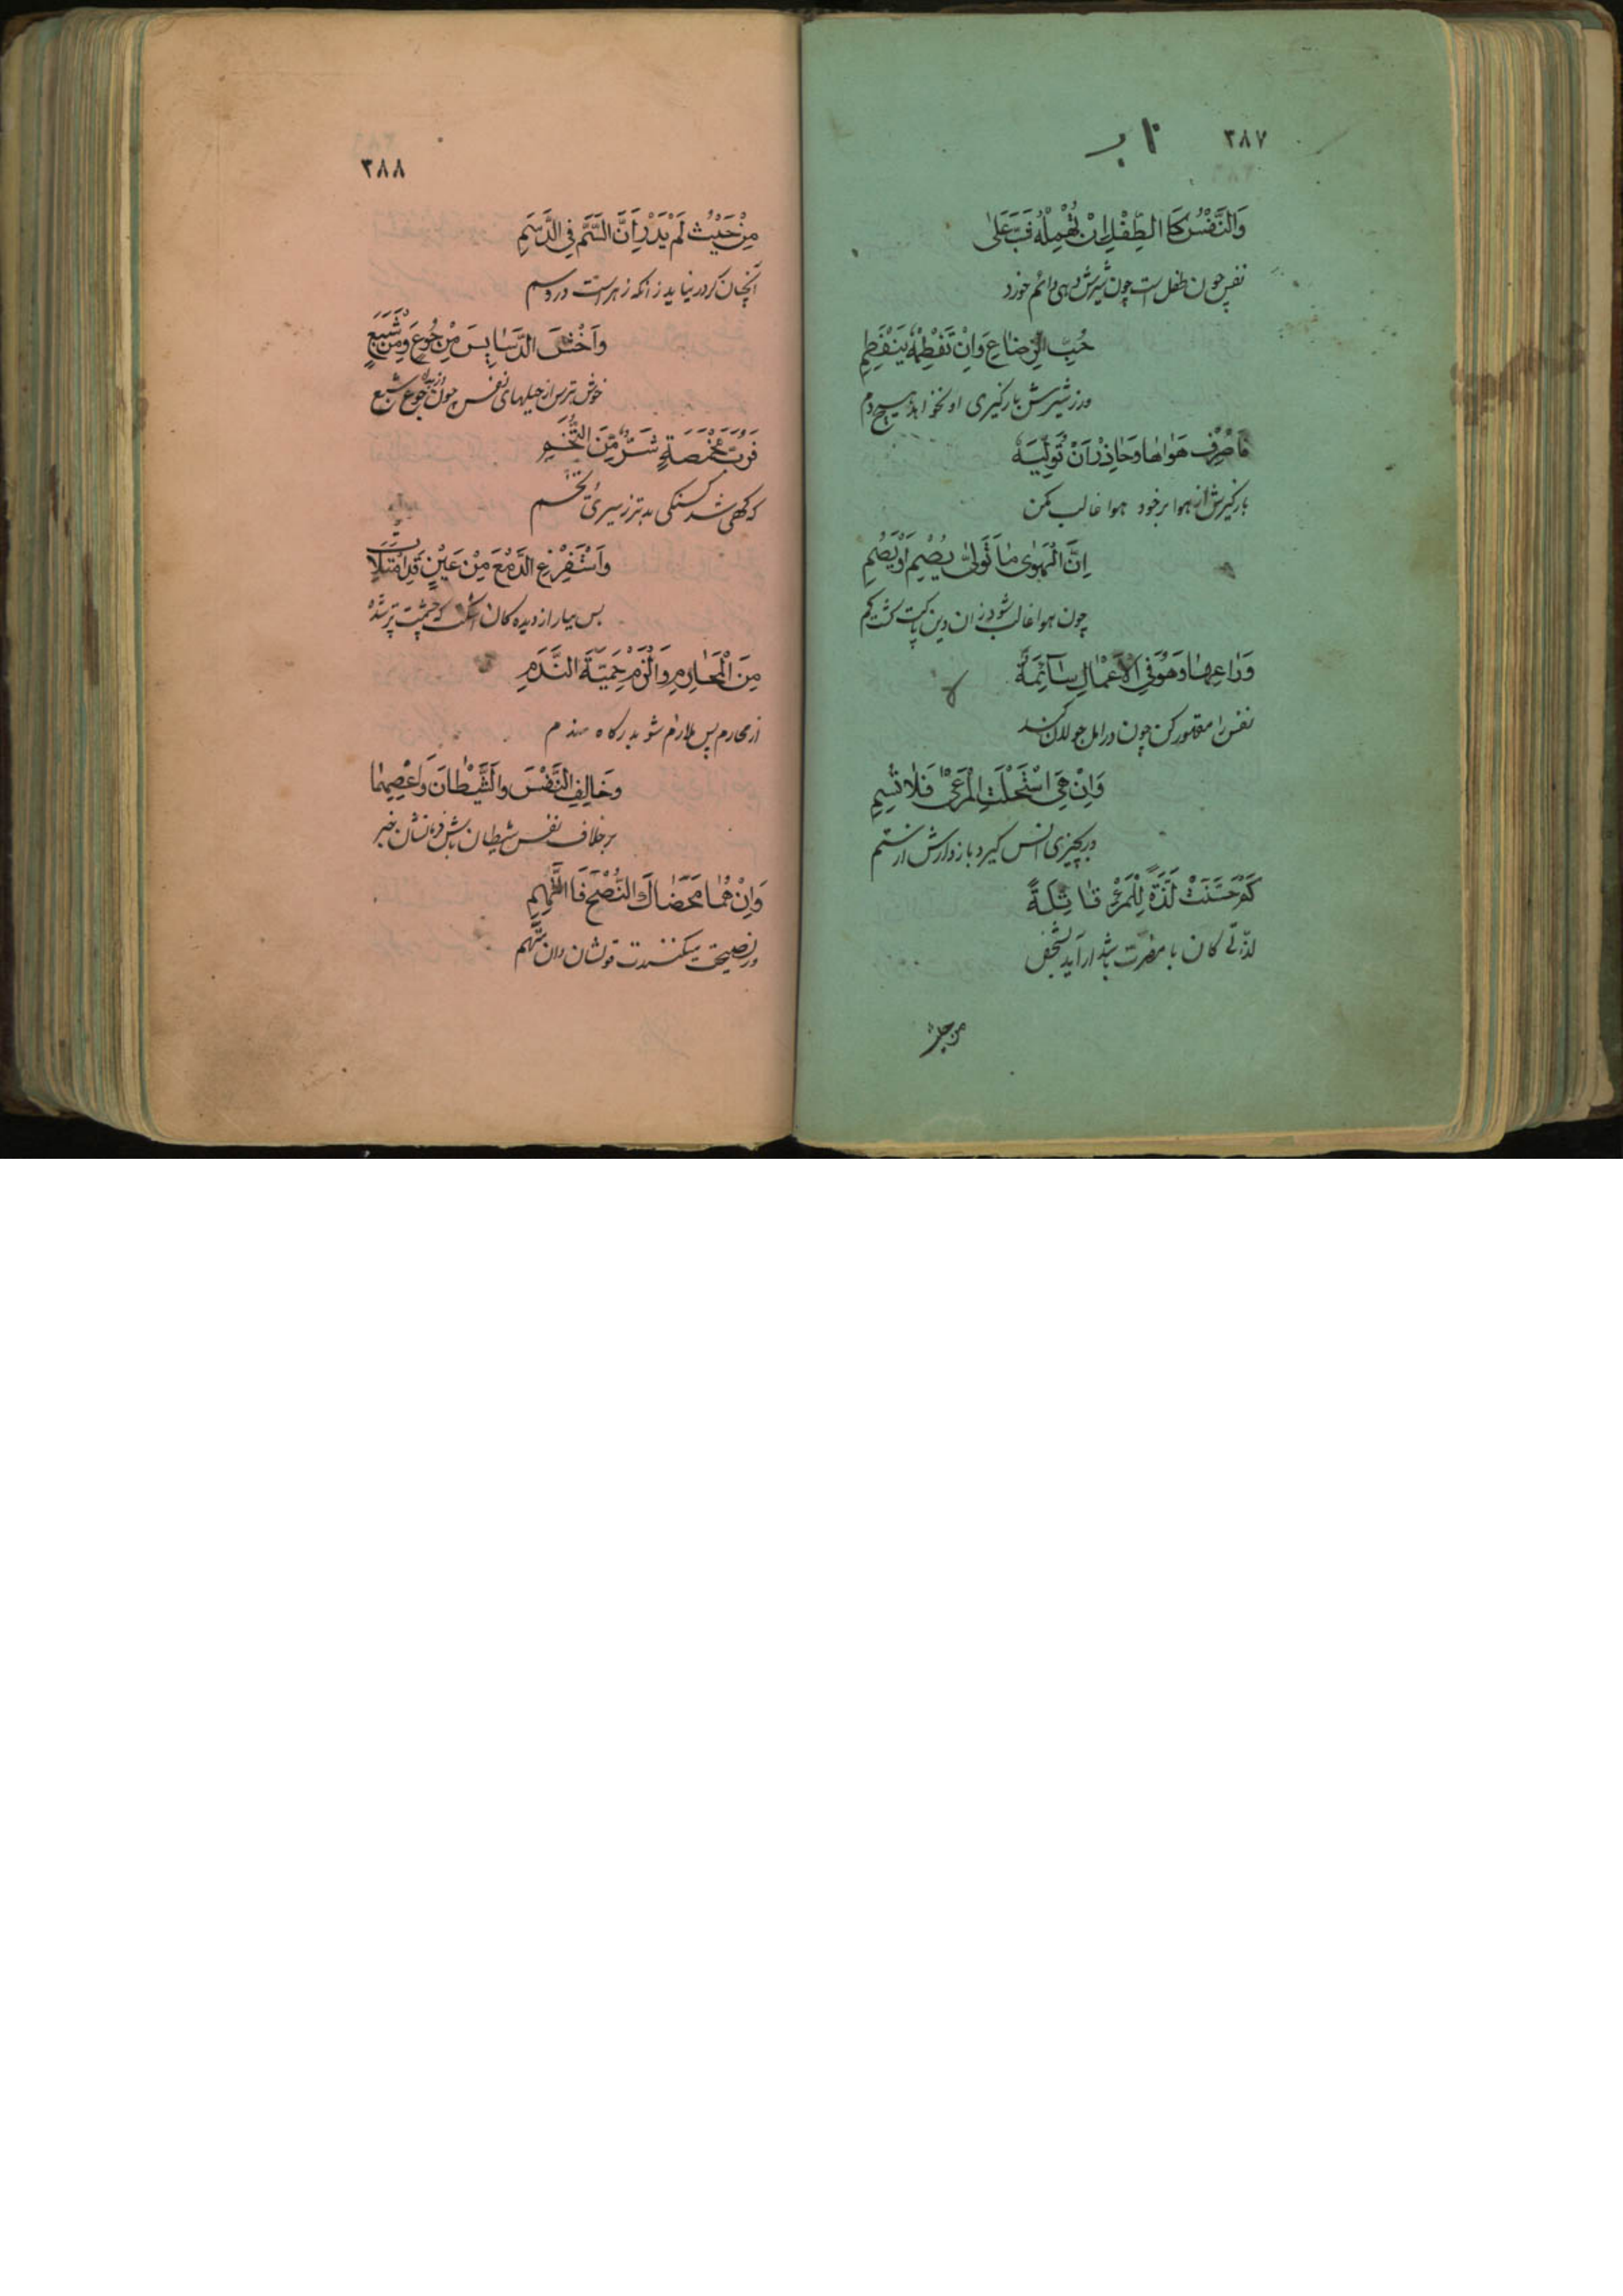 ٣٨٧
وَالنَّفْسُ كَا الطِّفْلِ اِنْ تُهْمِلْهُ شَبَّ عَلٰى
نفس چون طفل است چون شیرش دهی دائم خورد
حُبِّ الرِّضَاعِ وَاِنْ تَفْطِمْهُ يَنْفَطِمِ
ورز شیرش بازگیری او نخواهد هیچ دم
فَاصْرِفْ هَوٰاهٰا وَحٰاذِرْ اَنْ تُوَلِّيَهُ
بازگیرش از هوا بر خود هوا غالب مکن
اِنَّ الْهَوٰى مٰا تَوَلّٰى يُصْمِ اَوْ يَصِمِ
چون هوا غالب شود زان دین پاکت
وَرٰاعِهٰا وَهْوَ فِي الْاَعْمٰالِ سٰآئِمَةٌ
نفس را مقهور کن چون در امل جولان کند
وَاِنْ هِيَ اسْتَحْلَتِ الْمَرْعٰى فَلاٰ تُسِمِ
در بچیزی انس گیرد باز دارش از ستم
كَمْ حَسَّنَتْ لَذَّةً لِلْمَرْءِ قٰاتِلَةً
لذّتی کان با مضرت باشد آراید بشخص
من حیث
٣٨٨
مِنْ حَيْثُ لَمْ يَدْرِ اَنَّ السَّمَّ فِي الدَّسَمِ
آنچنان کر در نیابد زانکه زهر است در دسم
وَاَخْشَ الدَّسٰايِسَ مِنْ جُوعٍ وَمِنْ شَبَعٍ
خوش بترس از حیلهای نفس چون جوع شبع
فَرُبَّ مَخْمَصَةٍ شَرٌّ مِّنَ التُّخَمِ
که گهی شد گسنگی بدتر ز سیریّ تخم
وَاَسْتَفْرِغِ الدَّمْعَ مِنْ عَيْنٍ قَدِ امْتَلَأَتْ
بس ببار از دیده کان اشکت که چشمت پر شد
مِنَ الْمَحٰارِمِ وَالْزَمْ حِمْيَةَ النَّدَمِ
از محارم پس ملازم شو بدرگاه ندم
وَخٰالِفِ النَّفْسَ وَالشَّيْطٰانَ وَاعْصِهِمٰا
بر خلاف نفس شیطان باش
وَاِنْ هُمٰا مَحَضٰاكَ النُّصْحَ فَاتَّهِمِ
ور نصیحت میکنندت تو شان دان متّهم